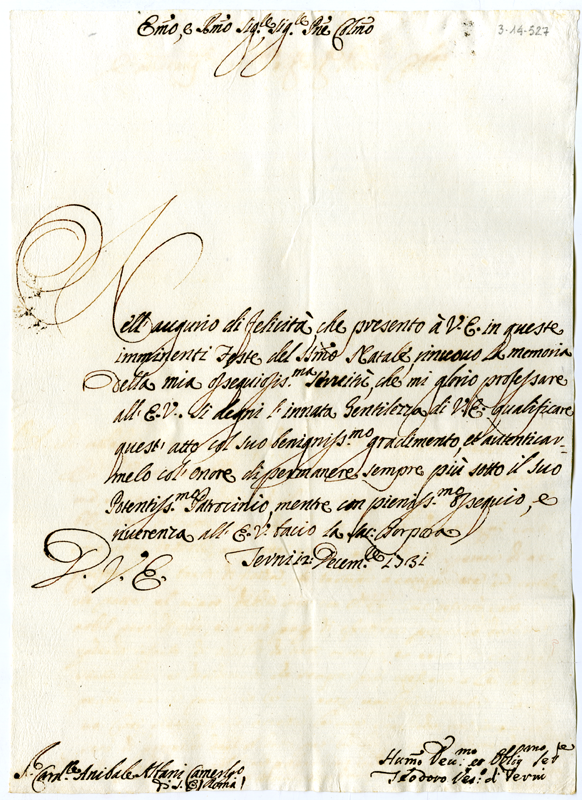 3-14-527
Emo, e Rmo Sig.re Sig.re Pne Colmo
Nell'augurio di felicità che presento à V.E. in queste
imminenti Feste del Ssmo Natale, rinuovo la memoria
della mia ossequiosiss.ma Servitù, che mi glorio professare
all'E.V. Si degni l'innata Gentilezza di V.E. qualificare
quest'atto col suo benigniss.mo gradimento, et autenticar-
melo coll'onore di permanere sempre più sotto il suo
Potentiss.mo Patrocinio, mentre con pieniss.mo ossequio, e
riverenza all'E.V. bacio la Sac: Porpora
D. V. E.
Terni 12: Decem.re 1731
S.r Card.le Anibale Albani Camerlgo
di S. C. / Roma /
Humo Deu.mo et Obligmo Se
Teodoro Ves.o di Terni